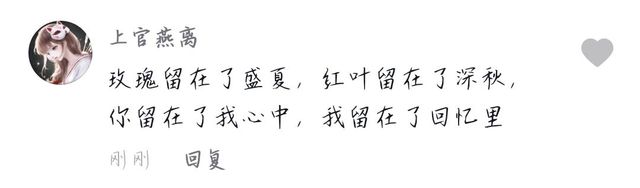 上官燕离
玫瑰留在了盛夏，红叶留在了深秋，
你留在了我心中，我留在了回忆里
刚刚 回复